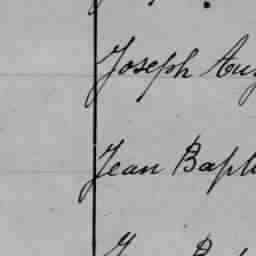 Joseph Aug
Jean Bapti